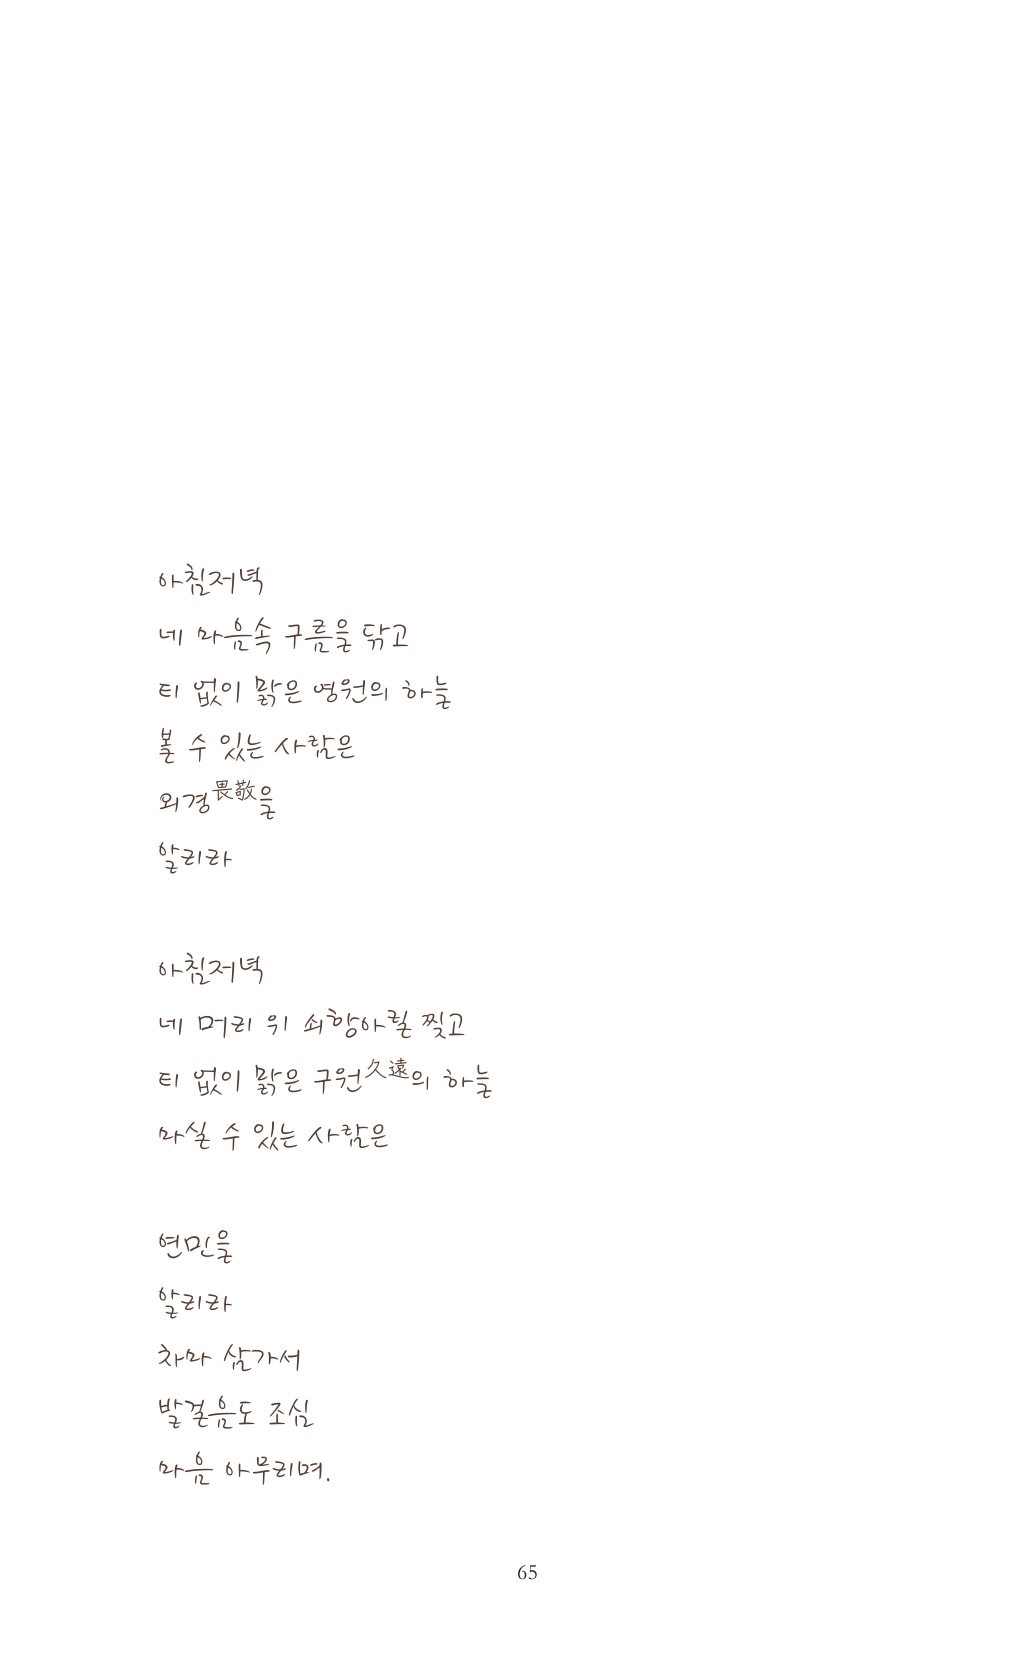 아침저녁
네 마음속 구름을 닦고
티 없이 맑은 영원의 하늘
볼 수 있는 사람은
외경畏敬을
알리라
아침저녁
네 머리 위 쇠항아릴 찢고
티 없이 맑은 구원久遠의 하늘
마실 수 있는 사람은
연민을
알리라
차마 삼가서
발걸음도 조심
마음 아무리며.
65